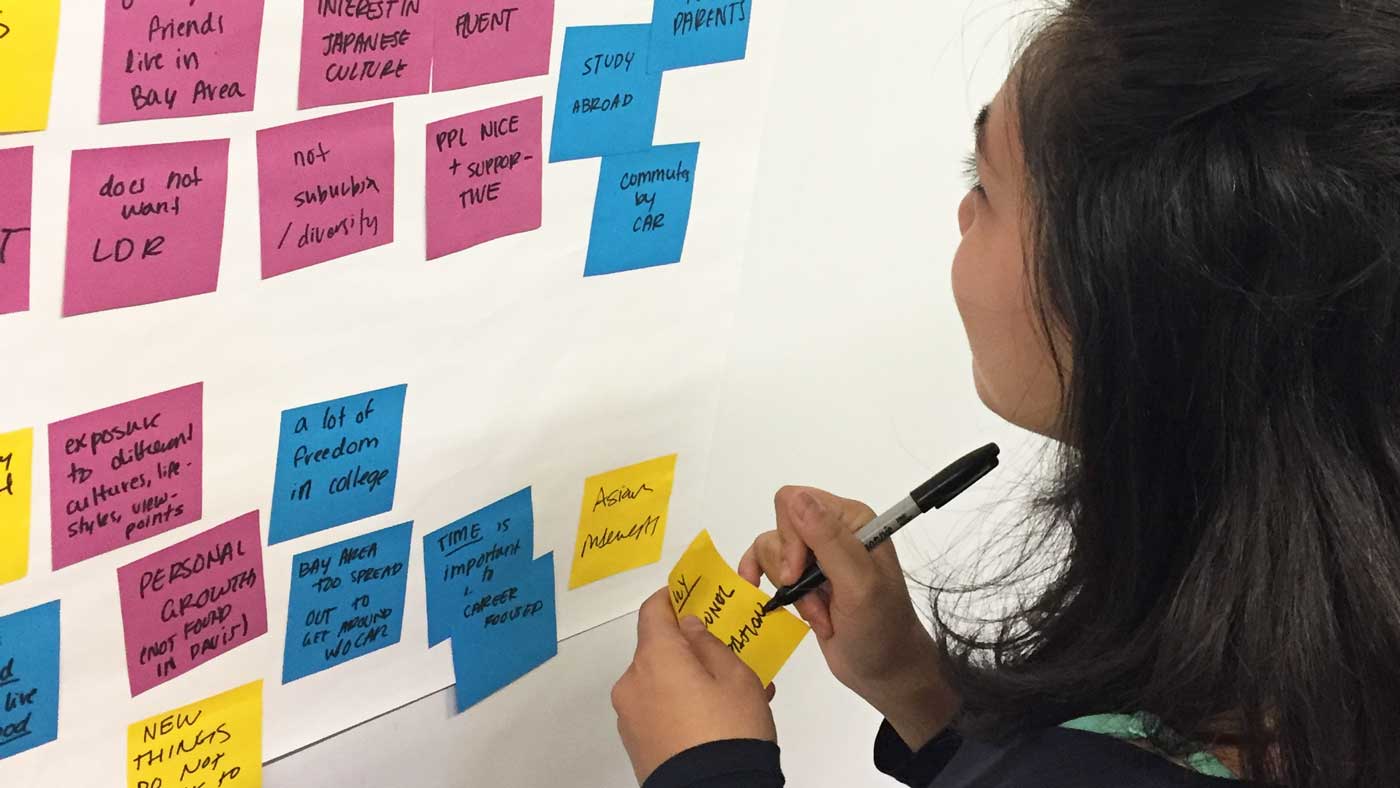 friends
live in
Bay Area
INTEREST IN
JAPANESE
CULTURE
FLUENT
PARENTS
STUDY
ABROAD
does not
want
LDR
not
suburbia
/ diversity
PPL NICE
+ SUPPOR-
TIVE
commutes
by
CAR
exposure
to different
cultures, life-
styles, view-
points
a lot of
freedom
in college
PERSONAL
GROWTH
(NOT FOUND
IN DAVIS)
BAY AREA
TOO SPREAD
OUT TO
GET AROUND
W/O CAR
TIME is
important
&
CAREER
FOCUSED
Asian
NEW
THINGS
DO NOT
TO
live